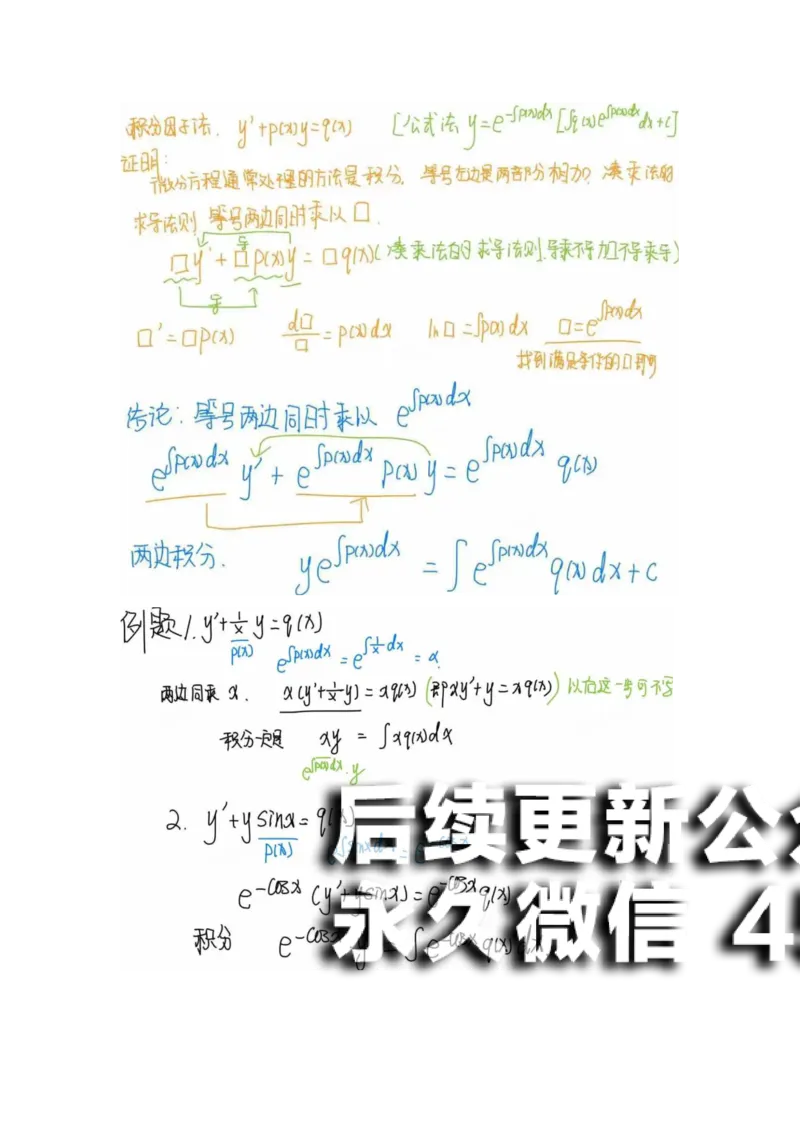 积分因子法. y'+p(x)y=q(x) [公式法 y=e^{-∫p(x)dx}[∫q(x)e^{∫p(x)dx}dx+c]
证明:
微分方程通常处理的方法是积分. 等号左边是两部分相加? 凑乘法的
求导法则 等号两边同时乘以□.
导
□y'+□p(x)y=□q(x)(凑乘法的求导法则.导乘不导加不导乘导)
导
□'=□p(x) d□/□=p(x)dx ln□=∫p(x)dx □=e^{∫p(x)dx}
找到满足条件的□即可
结论: 等号两边同时乘以 e^{∫p(x)dx}
e^{∫p(x)dx} y'+e^{∫p(x)dx} p(x)y=e^{∫p(x)dx} q(x)
两边积分. ye^{∫p(x)dx}=∫e^{∫p(x)dx}q(x)dx+c
例题1. y'+1/x y=q(x)
p(x) e^{∫p(x)dx}=e^{∫1/x dx}=x.
两边同乘 x. x(y'+1/x y)=xq(x) (即xy'+y=xq(x)) 以后这一步可不写
积分 xy=∫xq(x)dx
e^{∫p(x)dx}·y
2. y'+y sinx=q(x)
p(x)
e^{-cosx}(y'+ysinx)=e^{-cosx}q(x)
积分 e^{-cosx}y=∫e^{-cosx}q(x)dx
后续更新公
永久微信 4